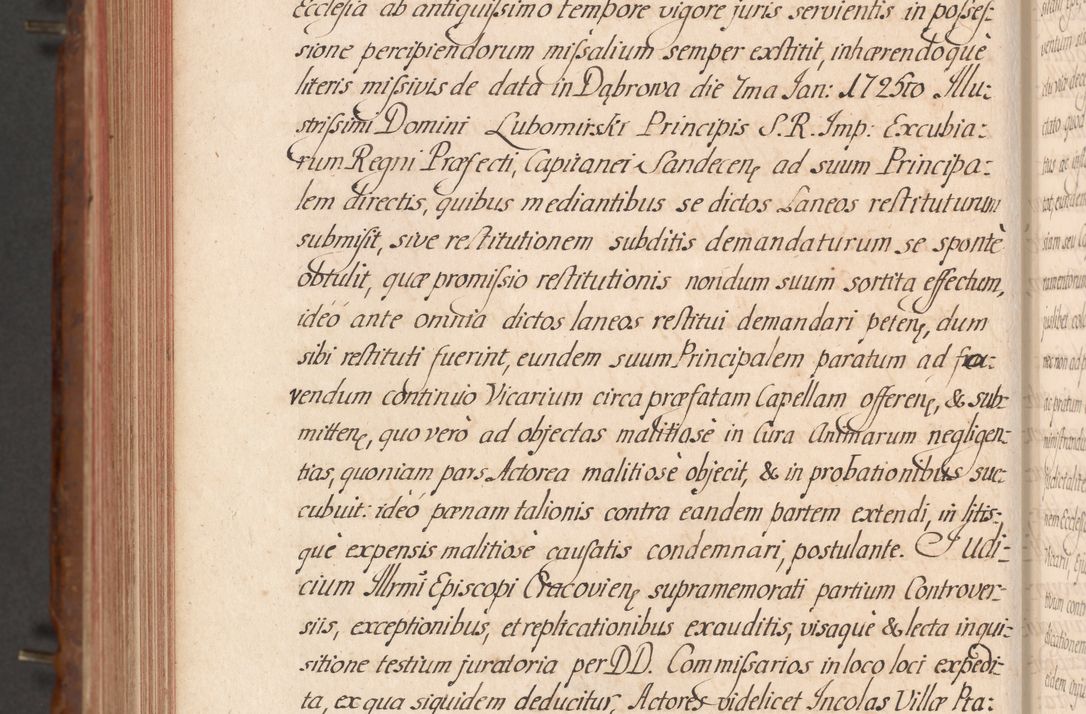 Ecclesia ab antiquissimo tempore vigore juris servientis in posses-
sione percipiendorum missalium semper exstitit, inhærendoquè
literis missivis de data in Dąbrowa die 7ma Jan: 1725to Illu-
strissimi Domini Lubomirski Principis S. R. Imp: Excubia-
rum Regni Præfecti, Capitanei Sandecenę ad suum Principa-
lem directis, quibus mediantibus se dictos Laneos restituturum
submisit, sive restitutionem subditis demandaturum se spontè
obtulit, quæ promissio restitutionis nondum suum sortita effectum,
ideó ante omnia dictos laneos restitui demandari petenę, dum
sibi restituti fuerint, eundem suum Principalem paratum ad fo-
vendum continuo Vicarium circa præfatam Capellam offerenę, & sub-
mittenę, quo verò ad objectas malitiosè in Cura Animarum negligen-
tias, quoniam pars Actorea malitiosè objecit, & in probationibus suc-
cubuit: ideó pœnam talionis contra eandem partem extendi, in litis-
què expensis malitiosè causatis condemnari, postulante. Judi-
cium Illrmi Episcopi Cracovienę supramemorati partium Controver-
siis, exceptionibus, et replicationibus exauditis, visaquè & lecta inqui-
sitione testium juratoria per DD. Commissarios in loco loci expedi-
ta, ex qua siquidem deducitur, Actores videlicet Incolas Villæ Pta-